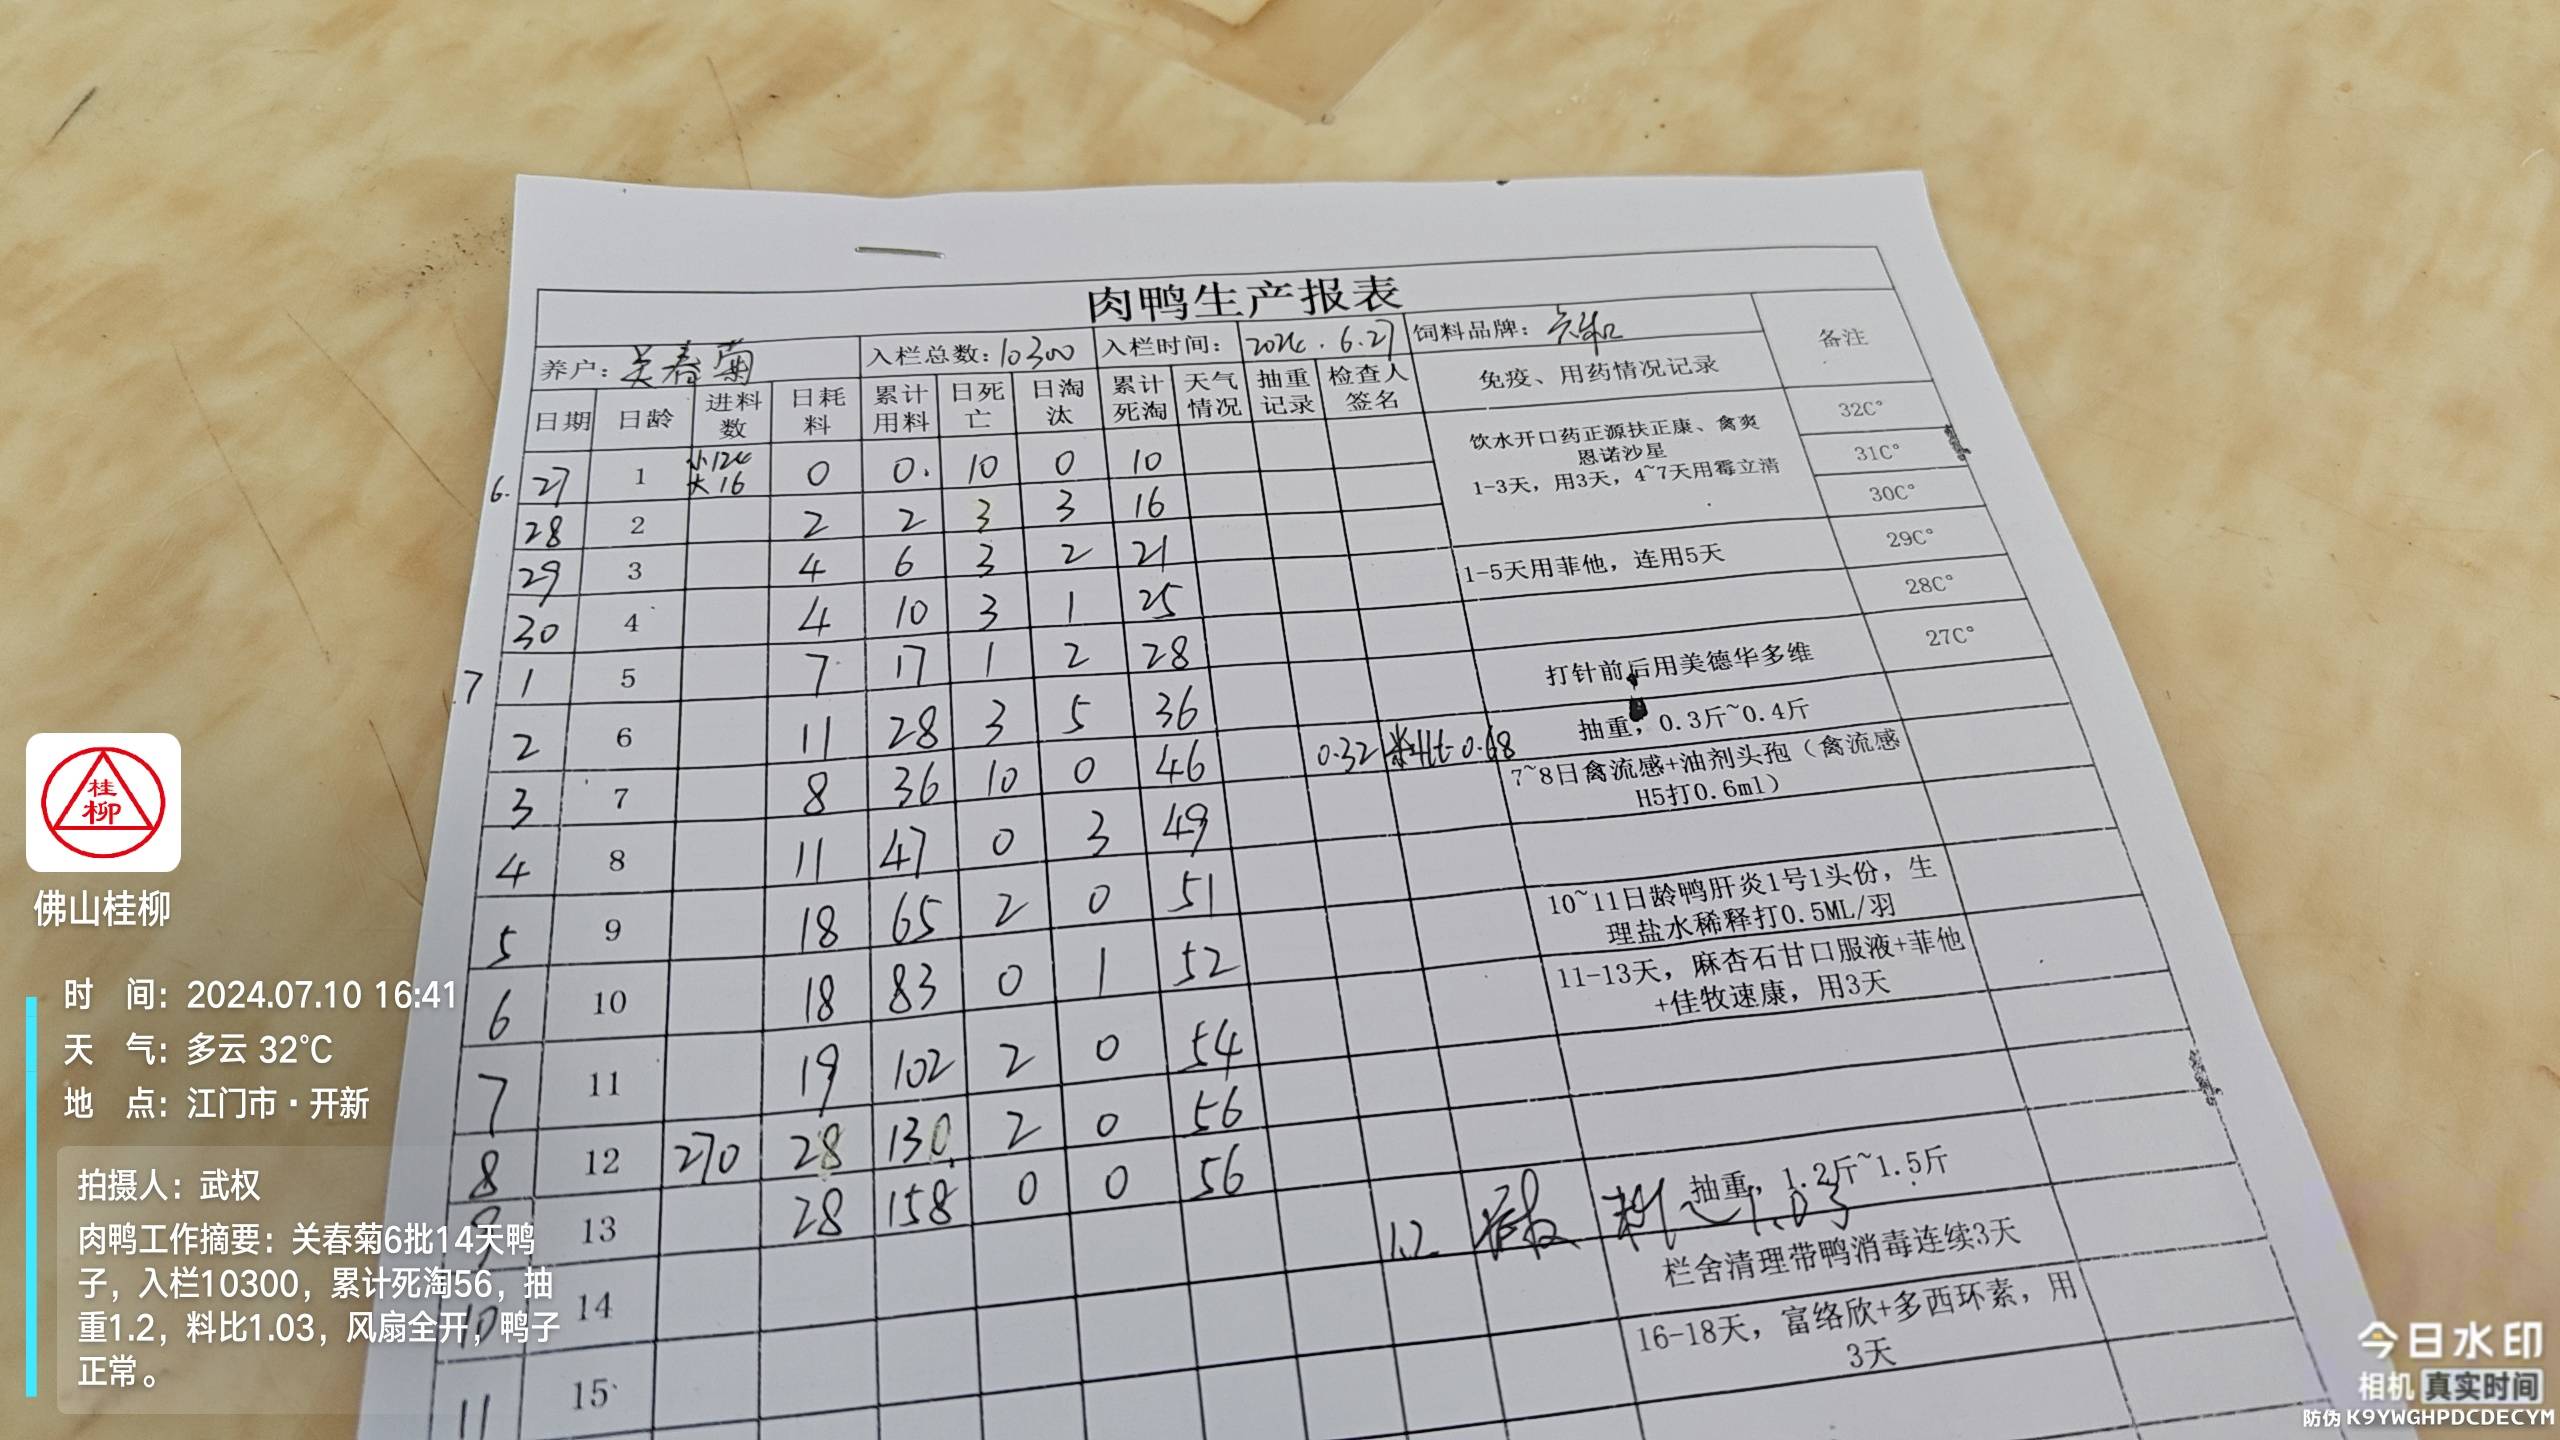 肉鸭生产报表
养户：关春菊 入栏总数：10300 入栏时间：2024.6.27 饲料品牌： 备注
日期 日龄 进料数 日耗料 累计用料 日死亡 日淘汰 累计死淘 天气情况 抽重记录 检查人签名 免疫、用药情况记录
6. 27 1 小124 大16 0 0. 10 0 10 32C°
饮水开口药正源扶正康、禽爽
恩诺沙星
1-3天，用3天，4~7天用霉立清
28 2 2 2 3 3 16 31C°
29 3 4 6 3 2 21 30C°
30 4 4 10 3 1 25 1-5天用菲他，连用5天 29C°
7 1 5 7 17 1 2 28 28C°
2 6 11 28 3 5 36 打针前后用美德华多维 27C°
3 7 8 36 10 0 46 0.32 料比0.68 抽重，0.3斤~0.4斤
4 8 11 47 0 3 49 7~8日禽流感+油剂头孢（禽流感
H5打0.6ml）
5 9 18 65 2 0 51
6 10 18 83 0 1 52 10~11日龄鸭肝炎1号1头份，生
理盐水稀释打0.5ML/羽
7 11 19 102 2 0 54 11-13天，麻杏石甘口服液+菲他
+佳牧速康，用3天
8 12 270 28 130. 2 0 56
9 13 28 158 0 0 56
1.2 料比1.03 抽重，1.2斤~1.5斤
10 14 栏舍清理带鸭消毒连续3天
11 15 16-18天，富络欣+多西环素，用
3天
桂柳
佛山桂柳
时 间：2024.07.10 16:41
天 气：多云 32℃
地 点：江门市·开新
拍摄人：武权
肉鸭工作摘要：关春菊6批14天鸭
子，入栏10300，累计死淘56，抽
重1.2，料比1.03，风扇全开，鸭子
正常。
今日水印
相机 真实时间
防伪 K9YWGHPDCDECYM